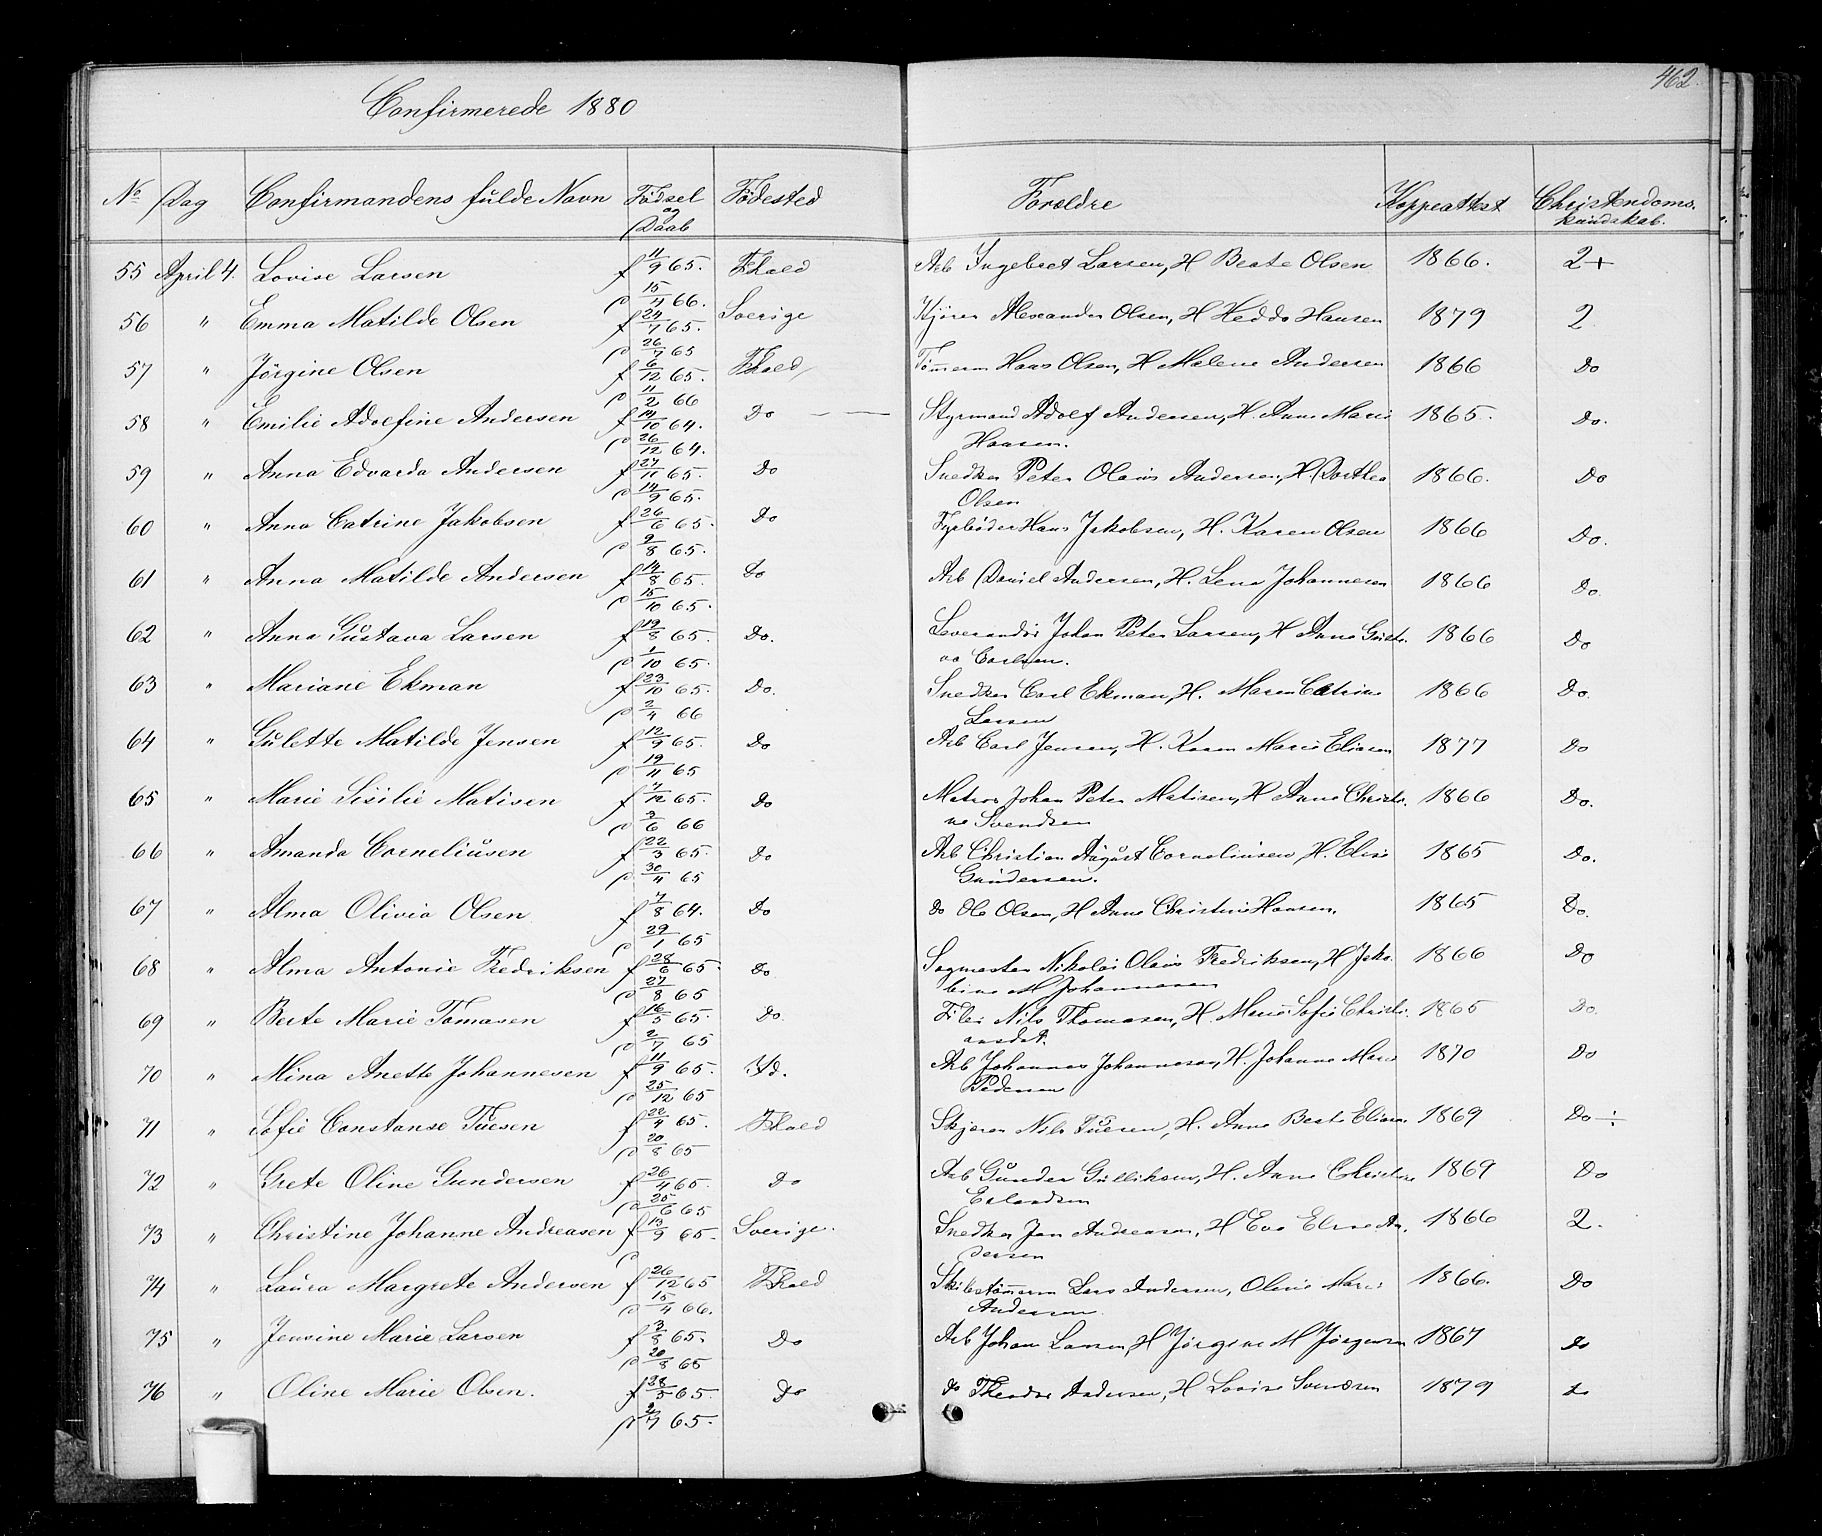 462.
Confirmerede 1880
No Dag Confirmandens fulde Navn Fødsel og Daab Fødested Forældre Koppeattest Christendoms kundskab.
55 April 4. Lovise Larsen f 11/9 65. Fhald Arb Ingebret Larsen, H Beate Olsen 1866. 2+
d 15/4 66.
56 " Emma Matilde Olsen f 24/7 65. Sverige Kjører Alexander Olsen, H Hedda Hansen 1879 2
d 26/7 65
57 " Jørgine Olsen f 6/12 65. Fhald Tømerm Hans Olsen, H Malene Andersen 1866 Do
d 11/2 66
58 " Emilie Adolfine Andersen f 14/10 64. Do Styrmand Adolf Andersen, H. Anne Marie 1865. Do.
d 26/12 64. Hansen.
59 " Anna Edvarda Andersen f 27/ 65. Do Snedker Peter Olaus Andersen, H. Dorthea 1866. Do
d 14/9 65. Olsen
60 " Anna Catrine Jakobsen f 26/6 65. Do Fyrbøder Hans Jakobsen, H. Karen Olsen 1866 Do.
d 9/8 65.
61 " Anna Matilde Andersen f 14/8 65. Do Arb Daniel Andersen, H. Lena Johannesen 1866 Do.
d 15/10 65.
62 " Anna Gustava Larsen f 19/8 65. Do. Leverandør Johan Peter Larsen, H Anne Gusta- 1866 Do
d 1/10 65. va Carlsen.
63 " Mariane Ekman f 23/10 65. Do. Snedker Carl Ekman, H. Maren Catrine 1866 Do.
d 2/4 66 Larsen
64 " Gulette Matilde Jensen f 12/9 65. Do Arb Carl Jensen, H. Karen Marie Eliasen 1877 Do
d 19/11 65
65 " Marie Sisilie Matisen f 7/12 65. Do Matros Johan Peter Matisen, H Anne Christi- 1866 Do.
d 3/6 66 ne Svendsen
66 " Amanda Corneliusen f 22/3 65. Do Arb Christian August Corneliusen, H. Elise 1865 Do.
d 30/4 65 Gundersen.
67 " Alma Olivia Olsen f 7/8 64. Do do Ole Olsen, H Anne Christine Hansen, 1865 Do.
d 29/1 65
68 " Alma Antonie Fredriksen f 28/6 65. Do. Sagmester Nikolai Olaus Fredriksen, H Jako- 1866 Do
d 27/8 65 bine M Johannesen
69 " Berte Marie Tomasen f 16/5 65. Do. Filer Nils Thomasen, H. Marie Sofie Christi- 1865 Do.
d 2/7 65 ansdat.
70 " Mina Anette Johannesen f 11/9 65. Id. Arb Johannes Johannesen, H. Johanne Marie 1870 Do
d 25/12 65 Pedersen
71 " Sofie Constanse Tuesen f 22/4 65. Fhald Skjører Nils Tuesen, H. Anne Beate Eliasen 1869 Do ÷
d 20/8 65
72 " Grete Oline Gundersen f 26/4 65. Do Arb Gunder Gulliksen, H. Anne Christine 1869 Do
d 25/6 65 Erlandsen
73 " Christine Johanne Andreasen f 13/9 65. Sverige. Snedker Jan Andreasen, H Eva Elise An- 1866 2.
d dersen
74 " Laura Margrete Andersen f 26/12 65 Fhald Skibstømerm Lars Andersen, Oline Marie 1866. Do
d 15/4 66. Andersen.
75 " Jensine Marie Larsen f 3/8 65. Do Arb Johan Larsen, H Jørgine M Jørgensen 1867 do
d 20/8 65
76 " Oline Marie Olsen. f 28/5 65. Do do Theodor Andersen, H Lovise Svendsen 1879 do
d 2/7 65.